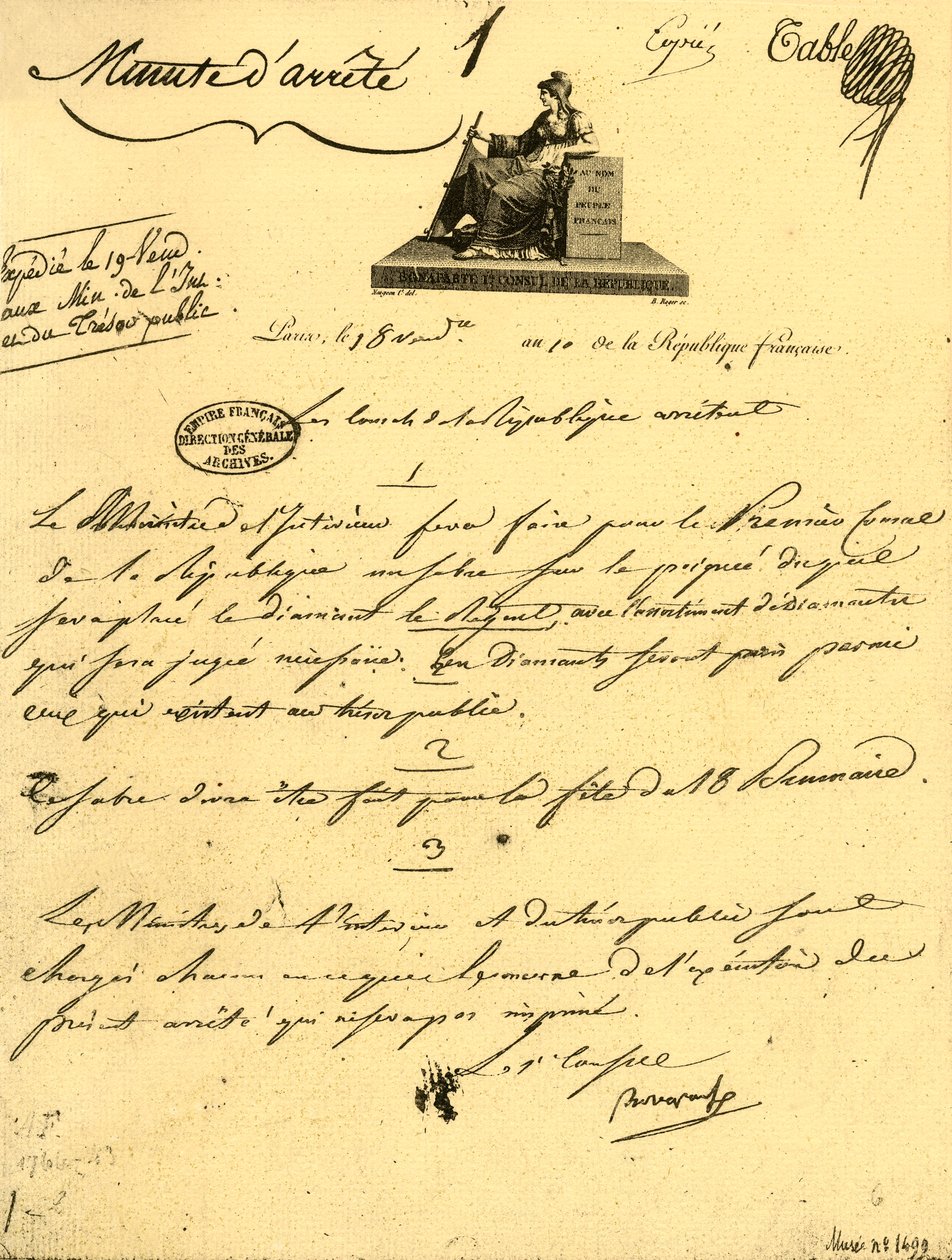 Minute d'arrêté
1
Copié
Table
AU NOM
DU
PEUPLE
FRANÇAIS
BONAPARTE 1er CONSUL DE LA RÉPUBLIQUE.
Naigeon
del.
B. Roger sc.
Expédié le 19 Vend.
aux Min. de l'Int:
et du Trésor public
Paris, le 18 vend.re an 10 de la République française.
EMPIRE FRANÇAIS
DIRECTION GÉNÉRALE
DES
ARCHIVES.
Les Consuls de la République arrêtent
1
Le Ministre de l'Intérieur fera faire pour le Premier Consul
de la République un sabre sur la poignée duquel
sera placé le diamant le Régent, avec l'assortiment de Diamants
qui sera jugé nécessaire. Ces Diamants seront pris parmi
ceux qui existent au trésor public.
2
Ce sabre devra être fait pour la fête du 18 Brumaire.
3
Les Ministres de l'intérieur et du trésor public sont
chargés chacun en ce qui le concerne de l'exécution du
présent arrêté qui ne sera pas imprimé.
Le 1er Consul
Bonaparte
Musée nº 1499